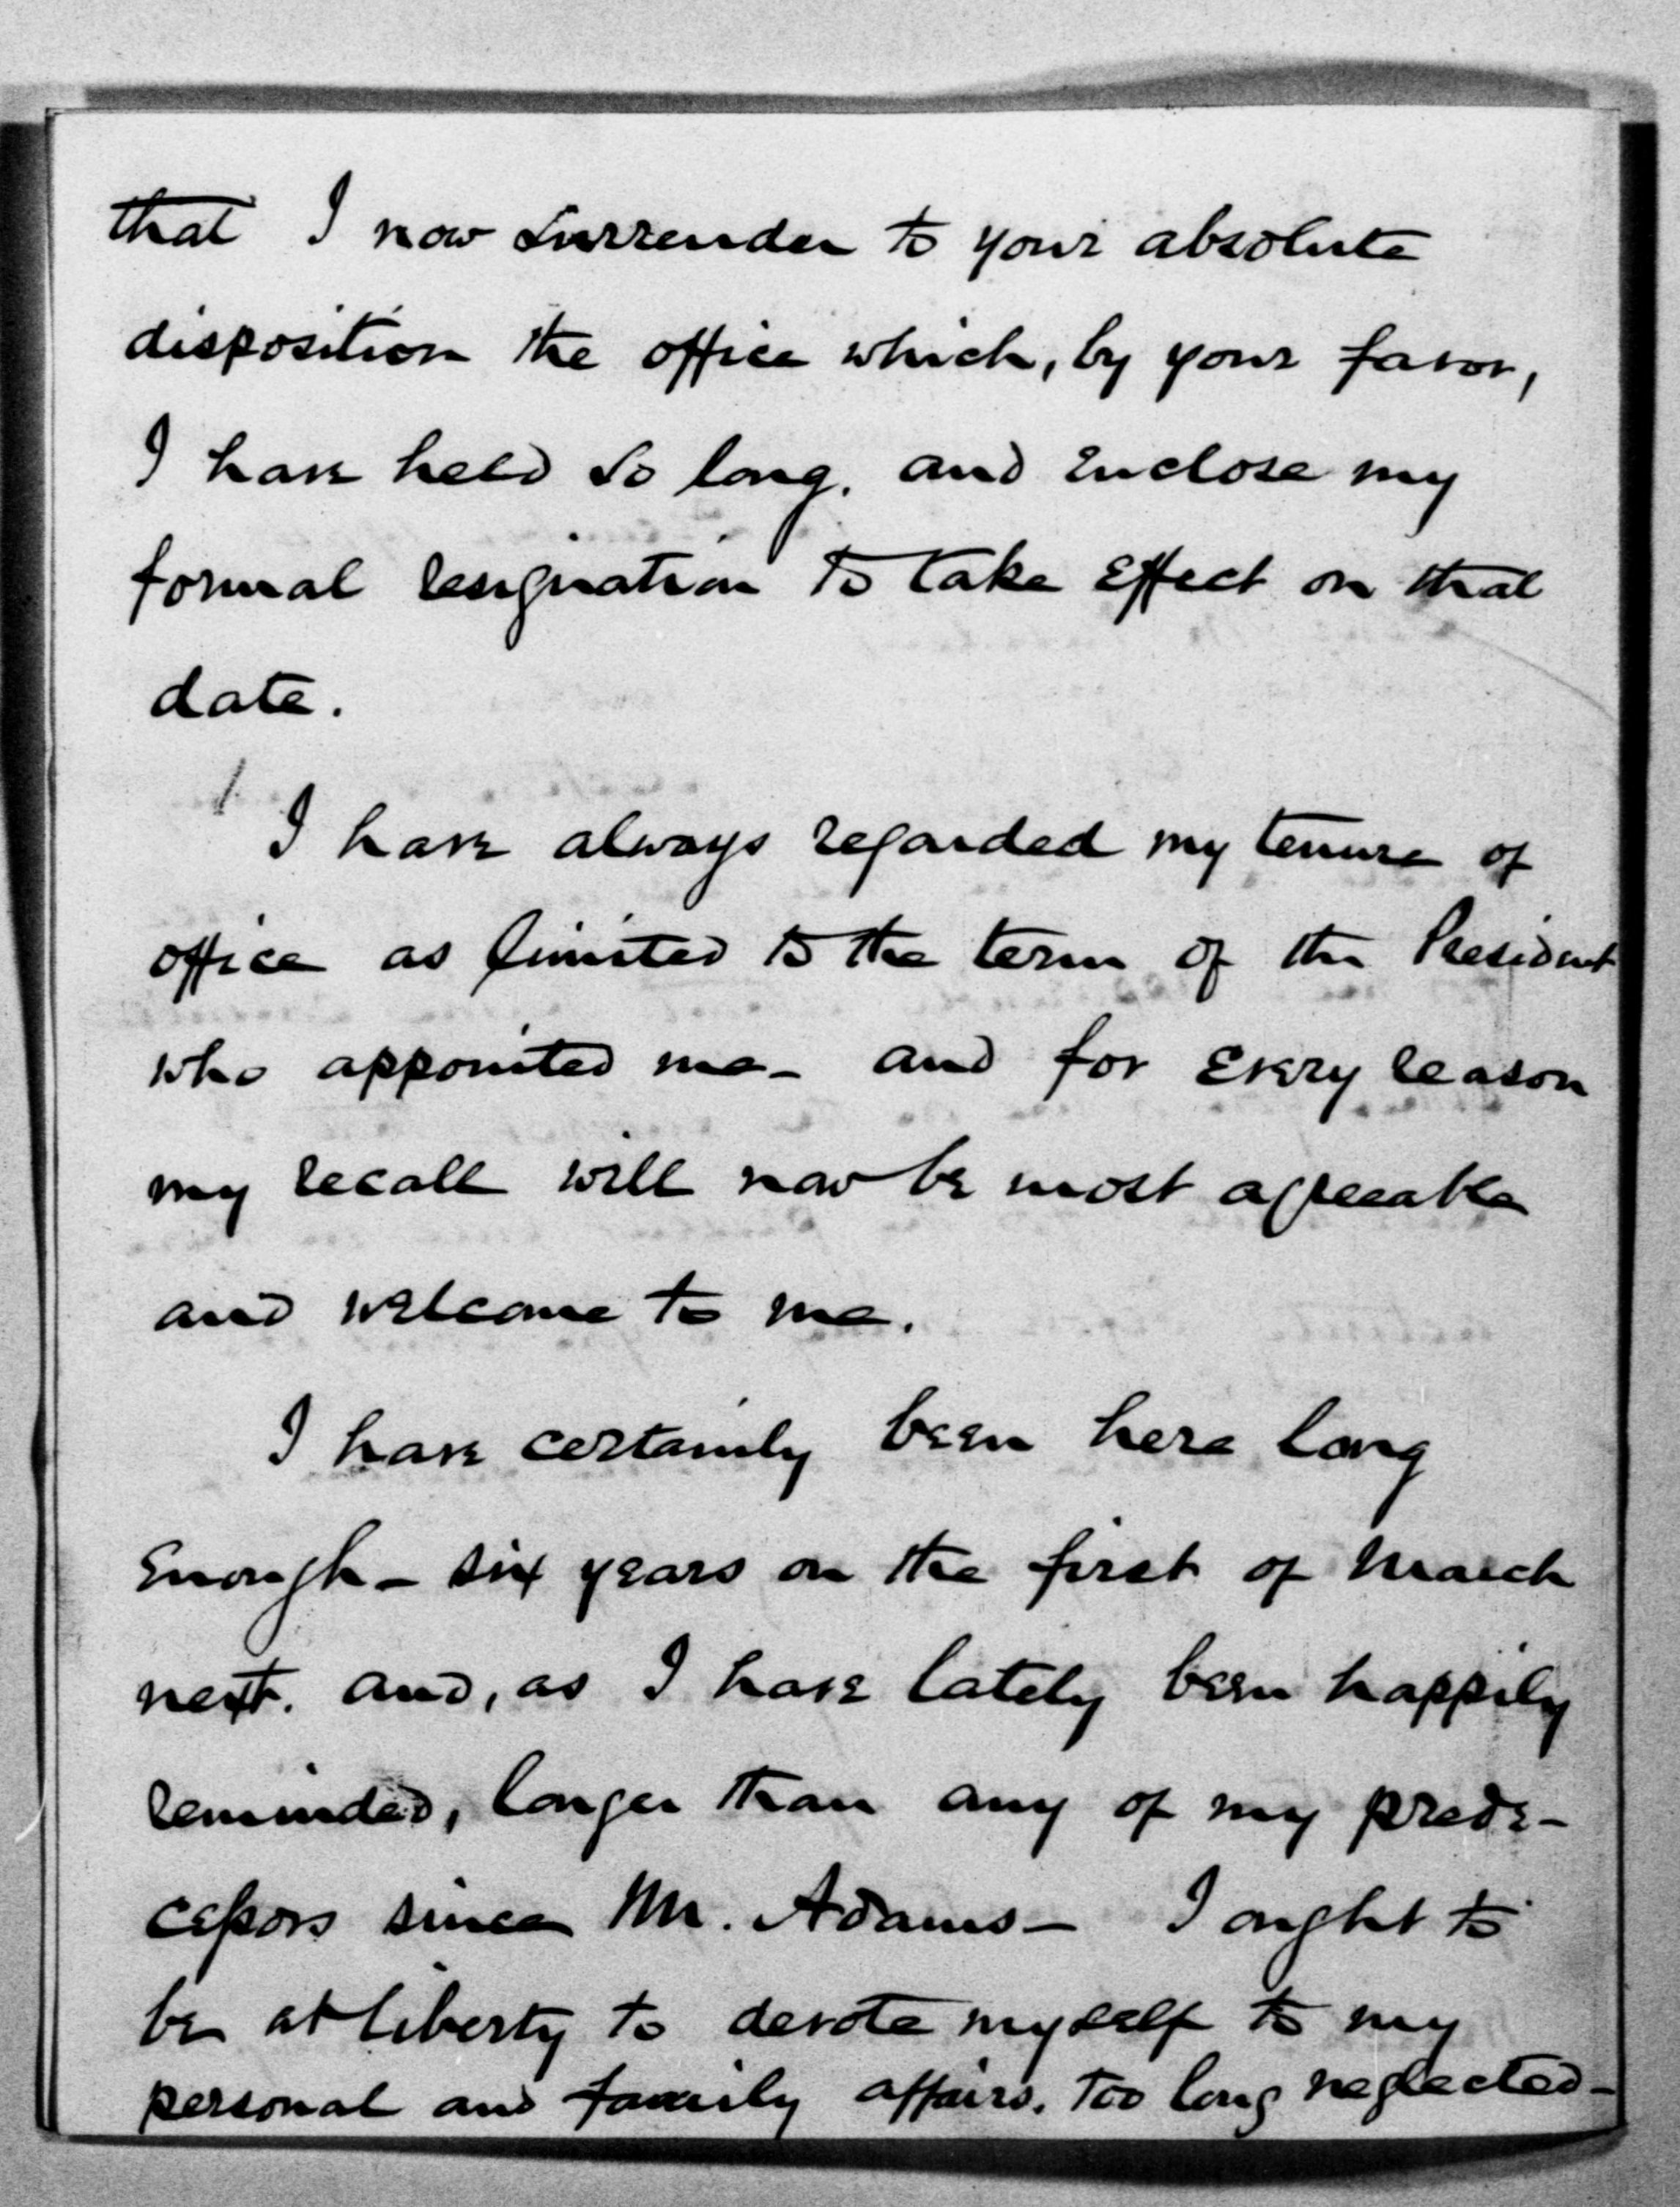 that I now surrender to your absolute
disposition the office which, by your favor,
I have held so long. and enclose my
formal resignation to take effect on that
date.
I have always regarded my tenure of
office as limited to the term of the President
who appointed me – and for every reason
my recall will now be most agreeable
and welcome to me.
I have certainly been here long
enough – six years on the first of March
next. and, as I have lately been happily
reminded, longer than any of my prede-
cessors since Mr. Adams – I ought to
be at liberty to devote myself to my
personal and family affairs. too long neglected –